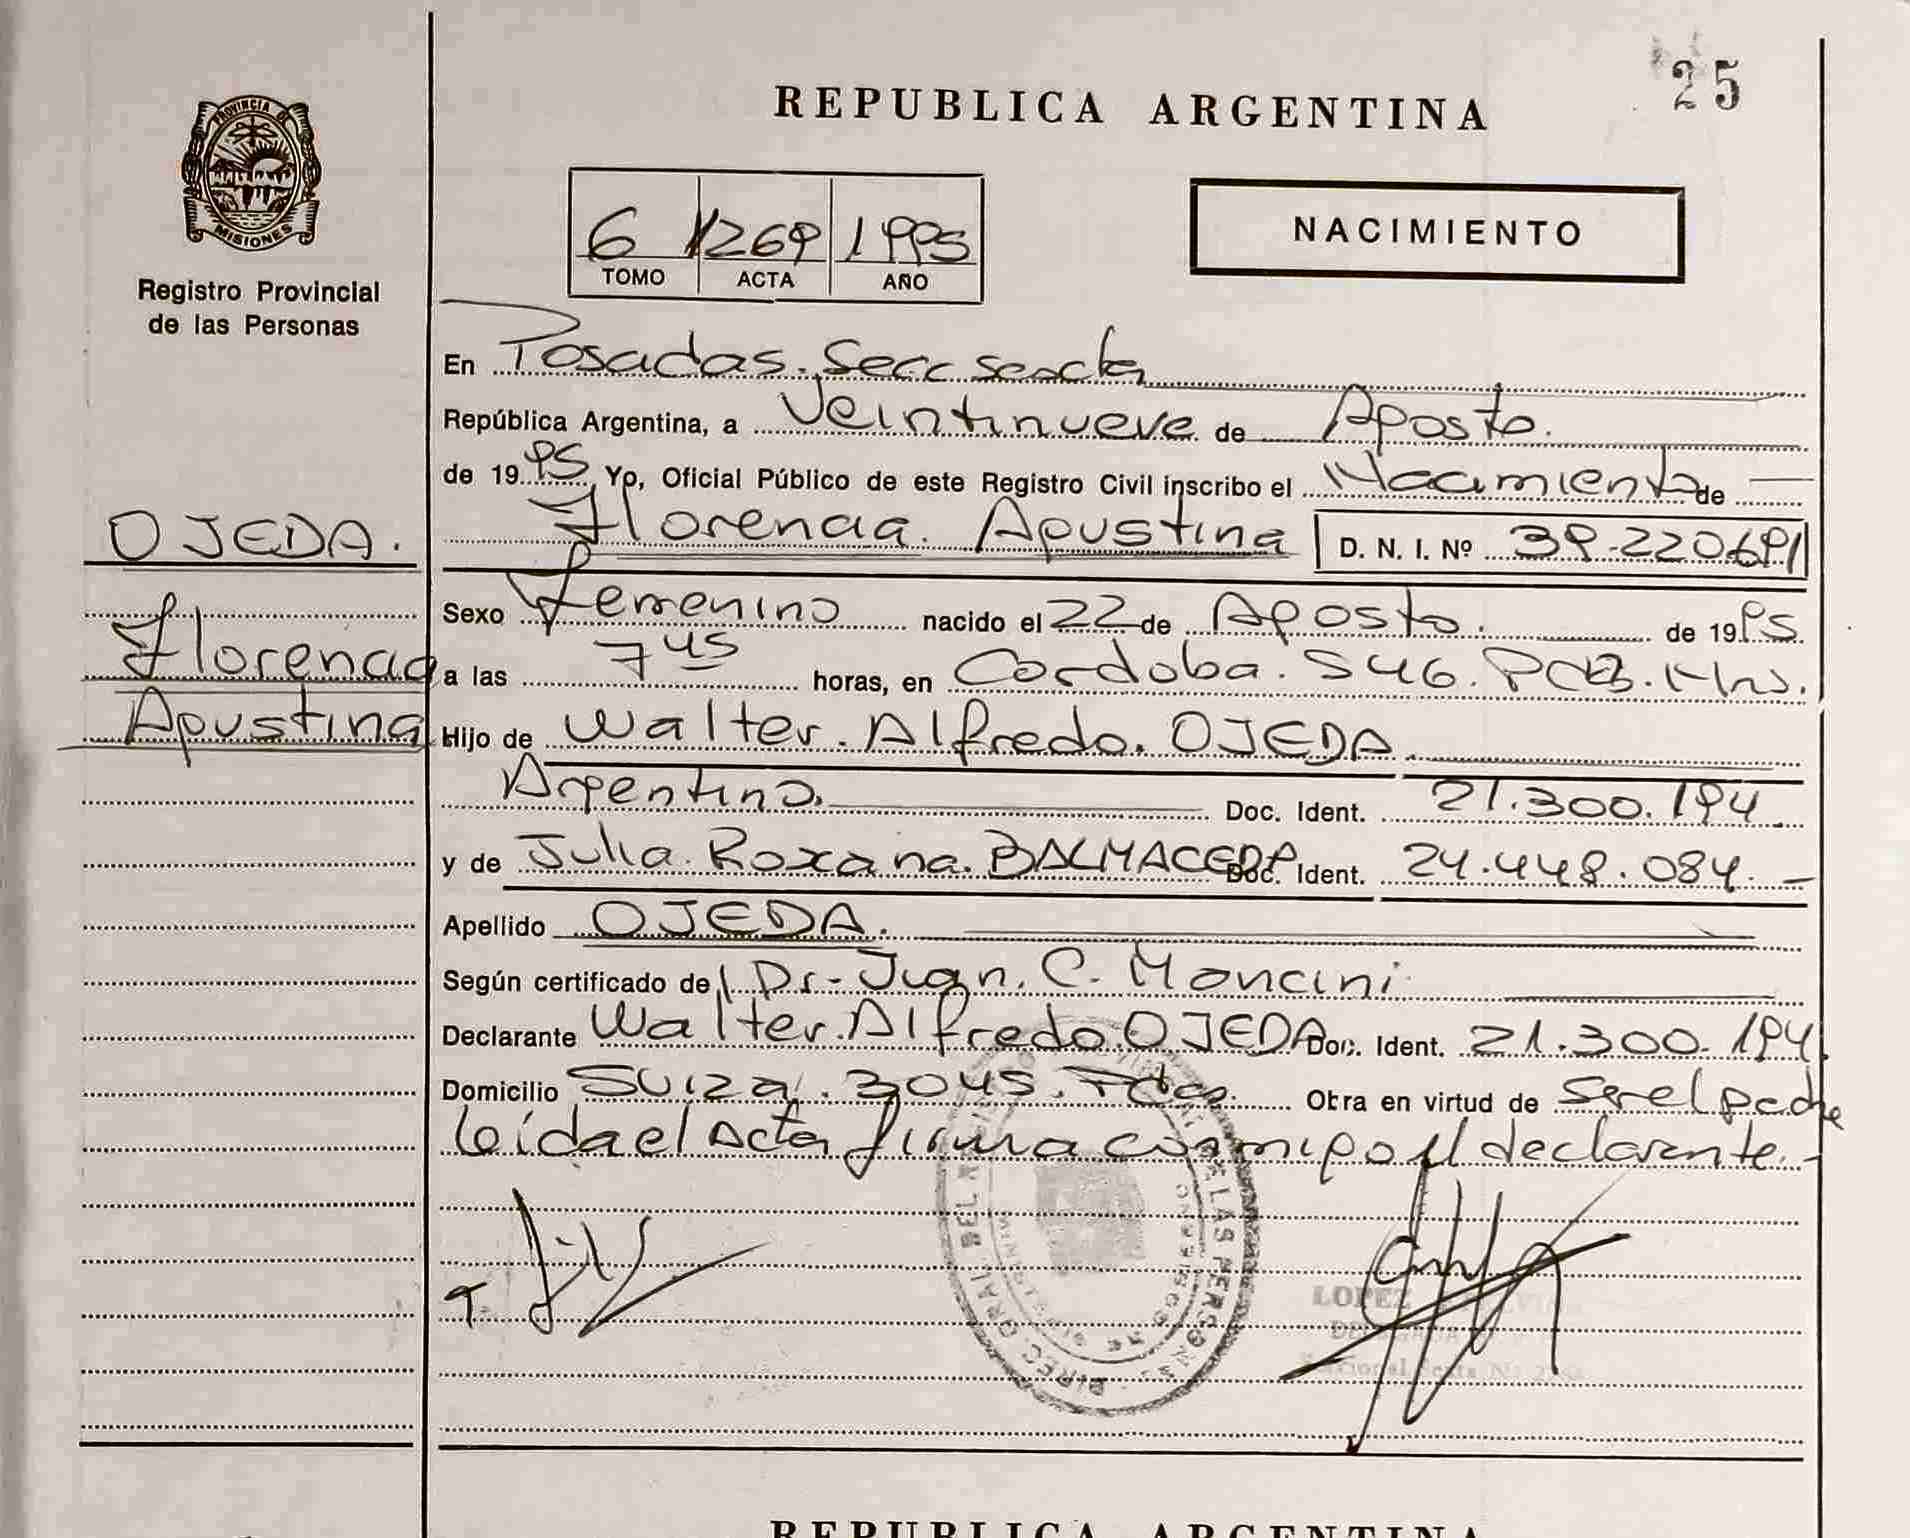 25
REPUBLICA ARGENTINA
PROVINCIA DE
MISIONES
Registro Provincial
de las Personas
6 1269 1995
TOMO ACTA AÑO
NACIMIENTO
En Posadas. Secc sexta
República Argentina, a Veintinueve de Agosto.
de 1995 Yo, Oficial Público de este Registro Civil inscribo el Nacimiento de
Florencia. Agustina D. N. I. Nº 39.220.691
OJEDA.
Florencia
Agustina
Sexo Femenino nacido el 22 de Agosto. de 1995.
a las 7 45 horas, en Cordoba. 546. Pdas. Mns.
Hijo de Walter. Alfredo. OJEDA
Argentino. Doc. Ident. 21.300.194
y de Julia. Roxana. BALMACEDA Doc. Ident. 24.448.084. -
Apellido OJEDA.
Según certificado del Dr- Juan. C. Moncini
Declarante Walter. Alfredo. OJEDA Doc. Ident. 21.300.194.
Domicilio Suiza. 3045. Pdas. Obra en virtud de ser el padre
leída el Acta firma conmigo el declarante. -
LOPEZ
REPUBLICA ARGENTINA